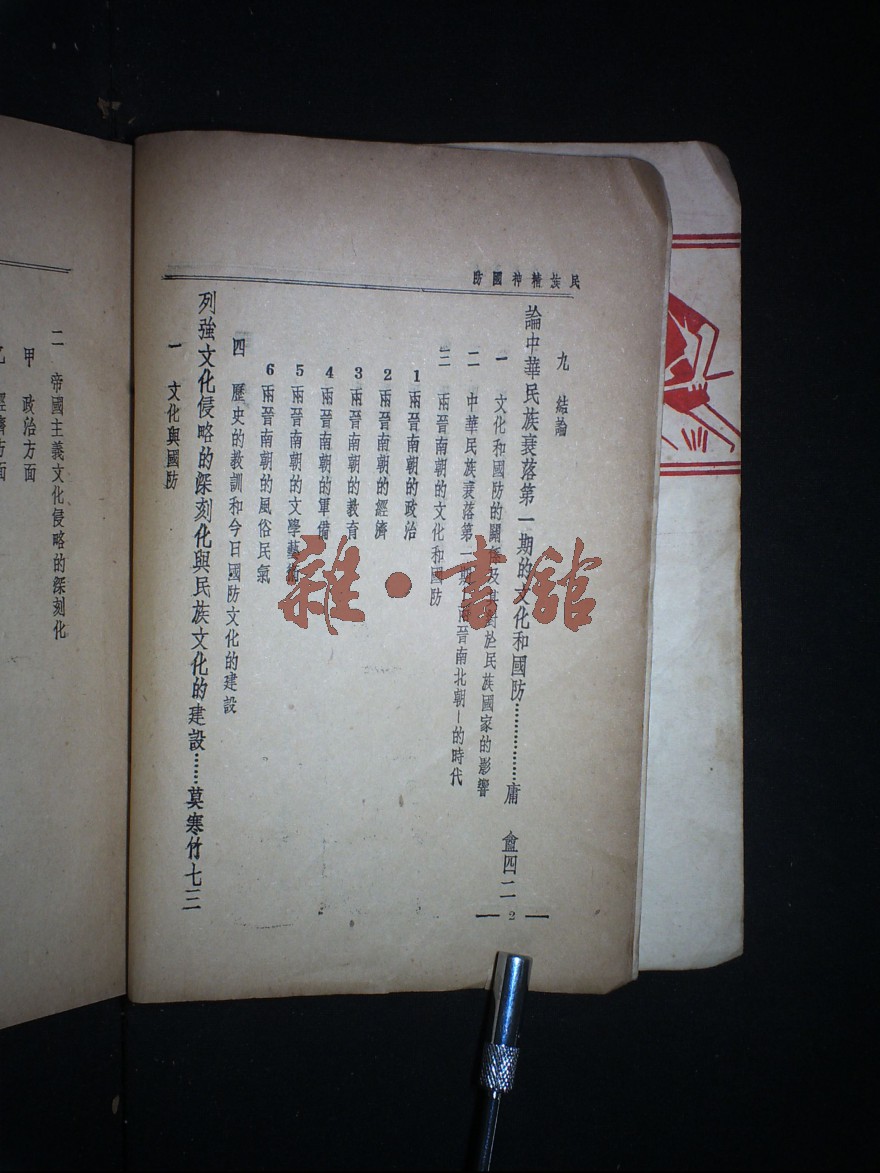 民族精神國防
九 結論
論中華民族衰落第一期的文化和國防………………庸 盦四二
一 文化和國防的關係及其對於民族國家的影響
二 中華民族衰落第一期—兩晉南北朝—的時代
三 兩晉南朝的文化和國防
1 兩晉南朝的政治
2 兩晉南朝的經濟
3 兩晉南朝的教育
4 兩晉南朝的軍備
5 兩晉南朝的文學藝術
6 兩晉南朝的風俗民氣
四 歷史的教訓和今日國防文化的建設
列強文化侵略的深刻化與民族文化的建設……莫寒竹七三
一 文化與國防
— 2 —
二 帝國主義文化侵略的深刻化
甲 政治方面
乙 經濟方面
雜·書館